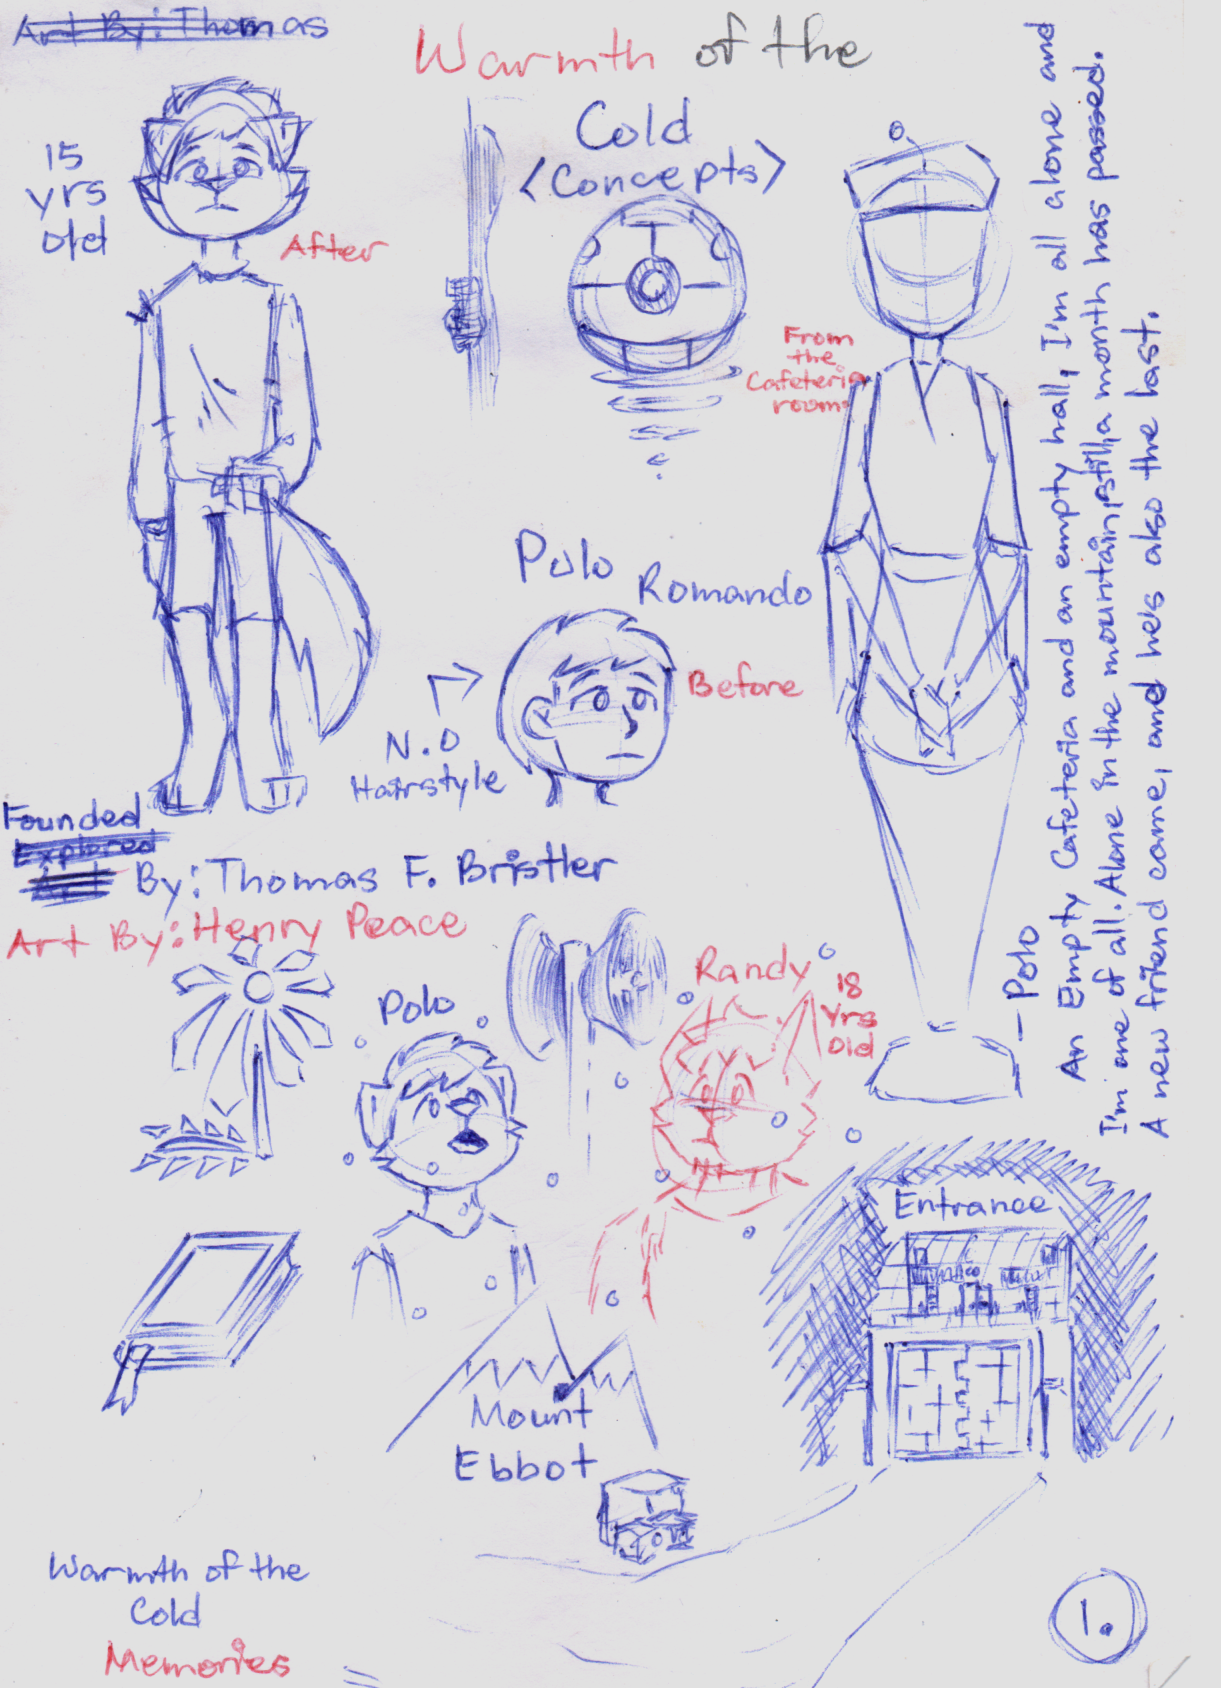 Art By: Thomas
Warmth of the
Cold
<Concepts>
15
yrs
old
After
From
the
Cafeteria
room
Polo Romando
Before
N.O
Hairstyle
Founded
Explored
Art By: Thomas F. Bristler
Art By: Henry Peace
Polo
Randy
18
Yrs
Old
An Empty Cafeteria and an empty hall, I'm all alone and
I'm one of all. Alone in the mountain, still, a month has passed.
A new friend came, and he's also the last.
—Polo
Entrance
Mount
Ebbot
Warmth of the
Cold
Memories
1.